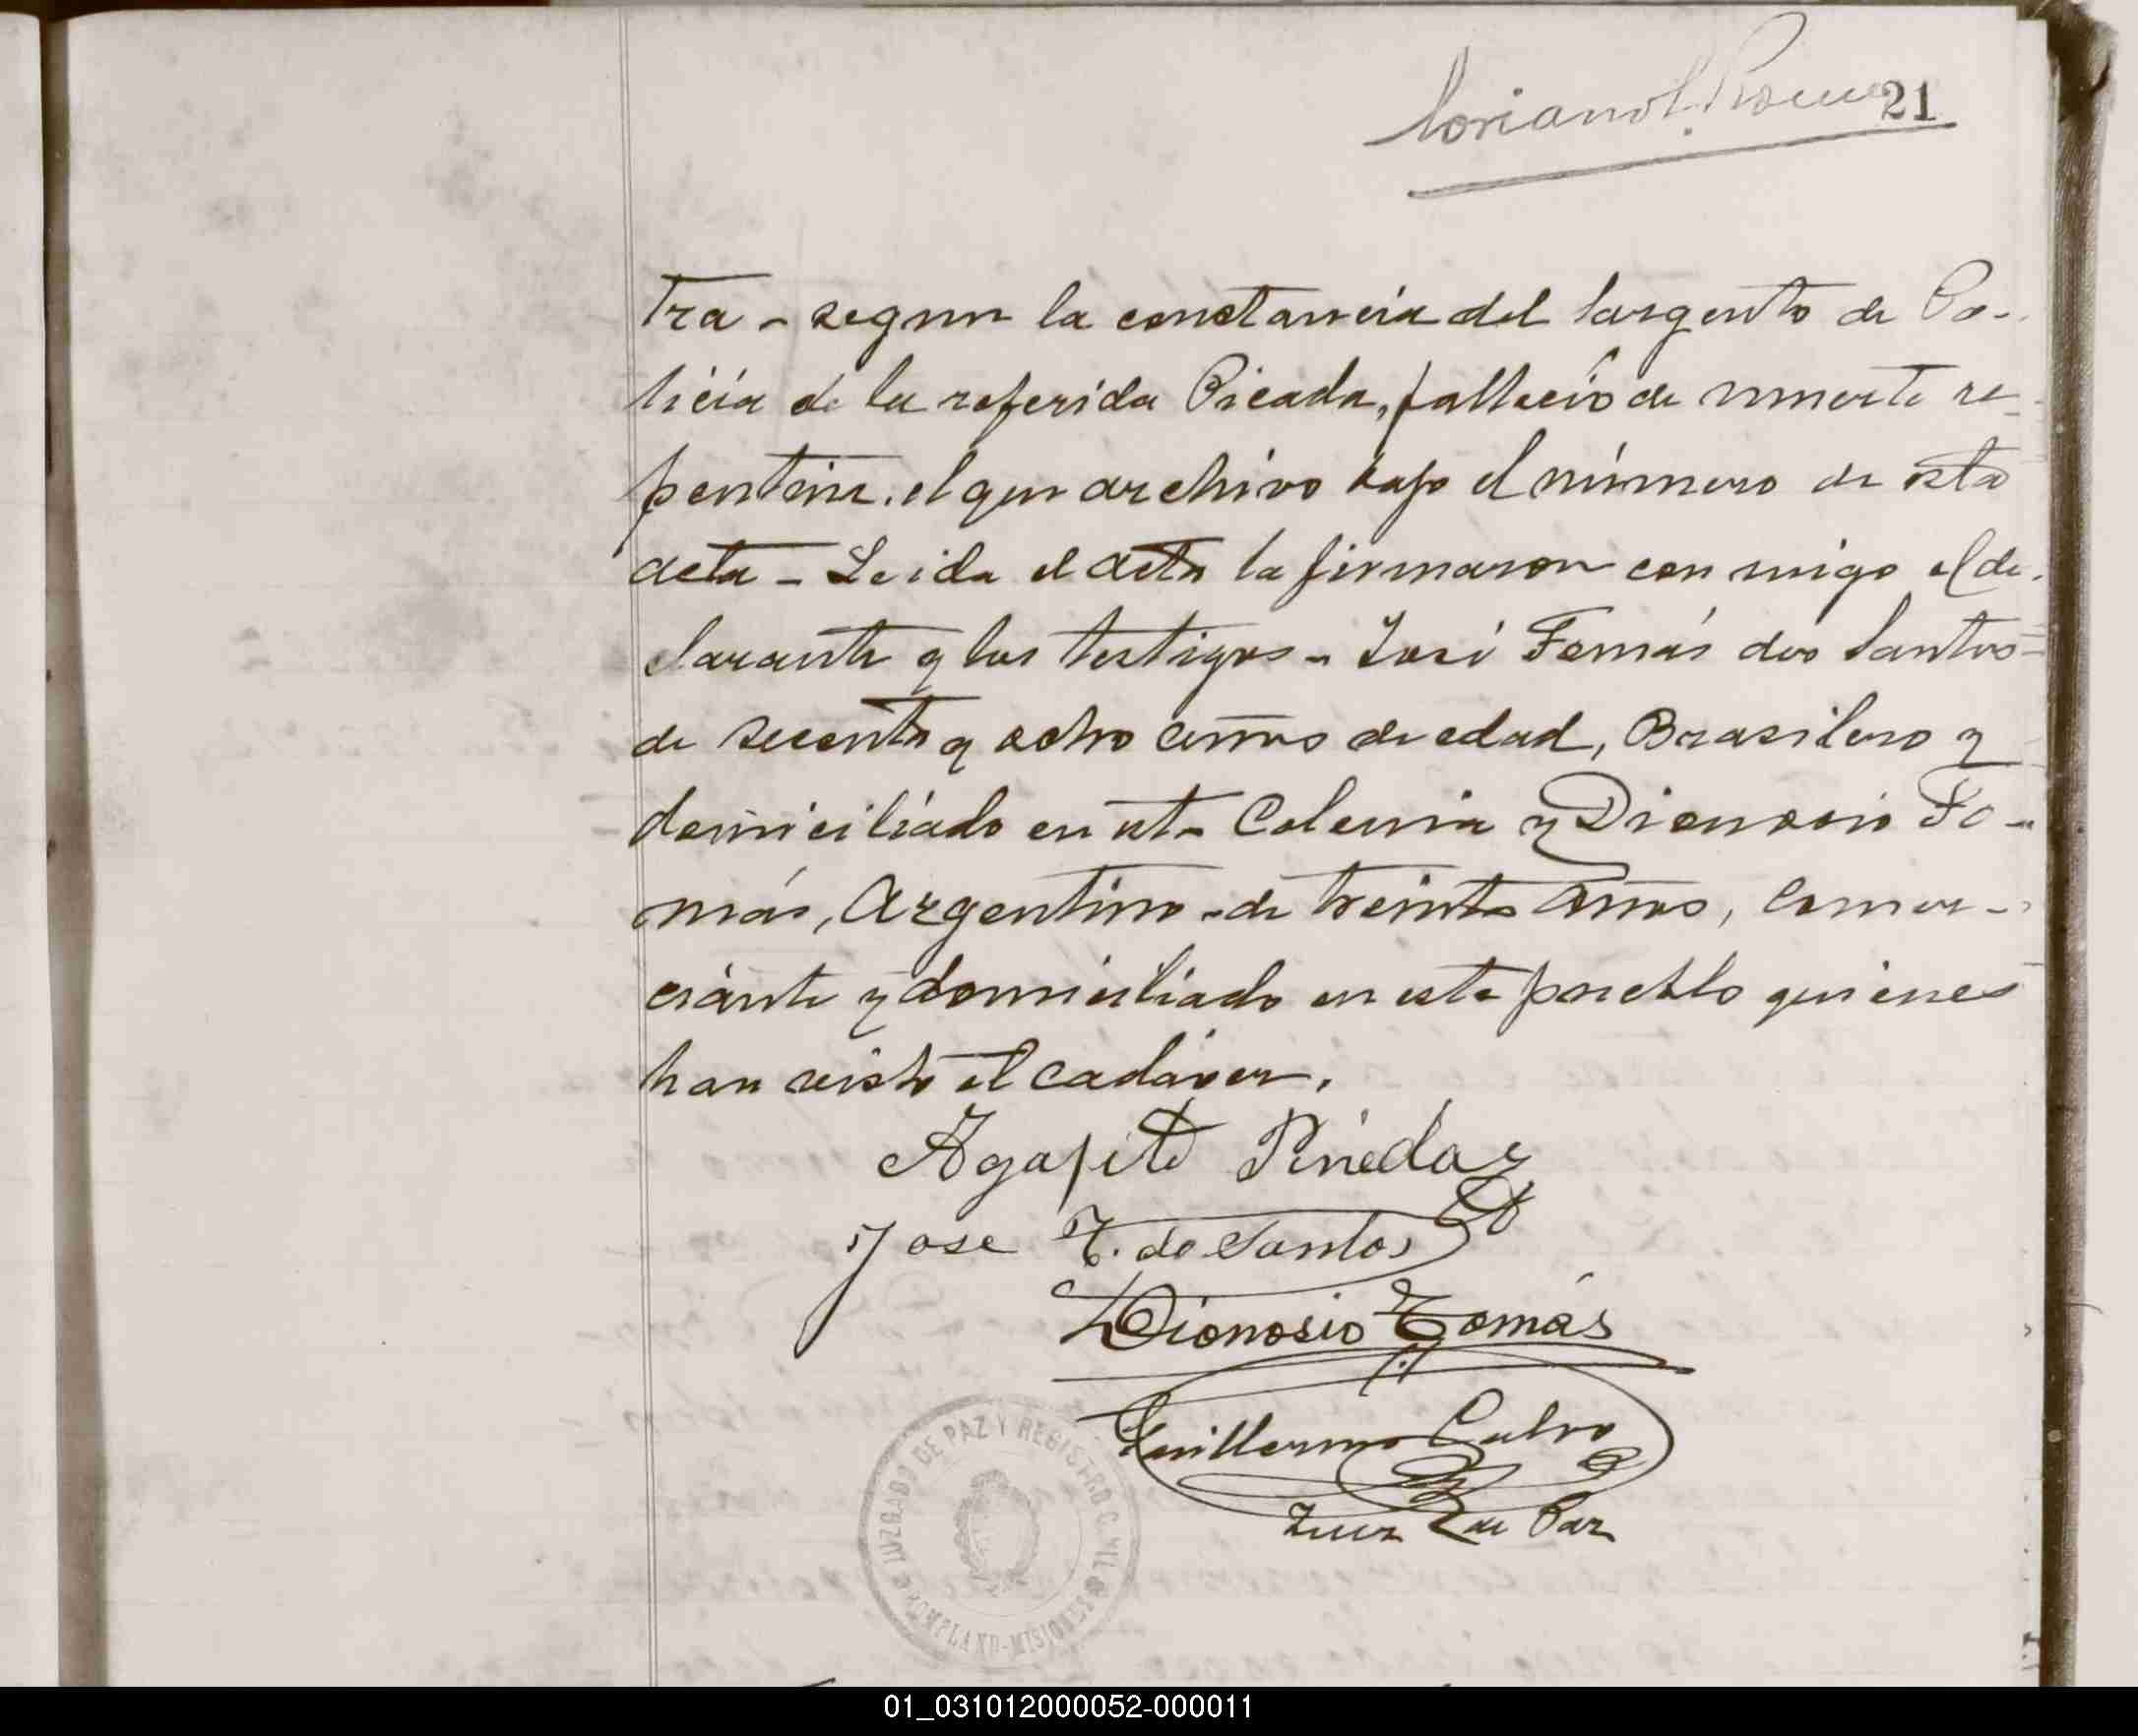 21
tra - segun la constancia del Sargento de Po-
licia de la referida Picada, fallecio de muerte re-
pentina. el que archivo bajo el número de esta
acta - Leida el acta la firmaron con migo el de-
clarante y los testigos - José Tomás dos Santos
de secenta y ocho años de edad, Brasilero y
domiciliado en esta Colonia y Dionosio To-
más, Argentino - de treinta años, comer-
ciante y domiciliado en este pueblo quienes
han visto el cadáver.
Agapito Pineda
Jose T. do Santos
Dionosio Tomás
Guillermo Calvo
Juez de Paz
JUZGADO DE PAZ Y REGISTRO CIVIL
BOMPLAND-MISIONES
01_031012000052-000011